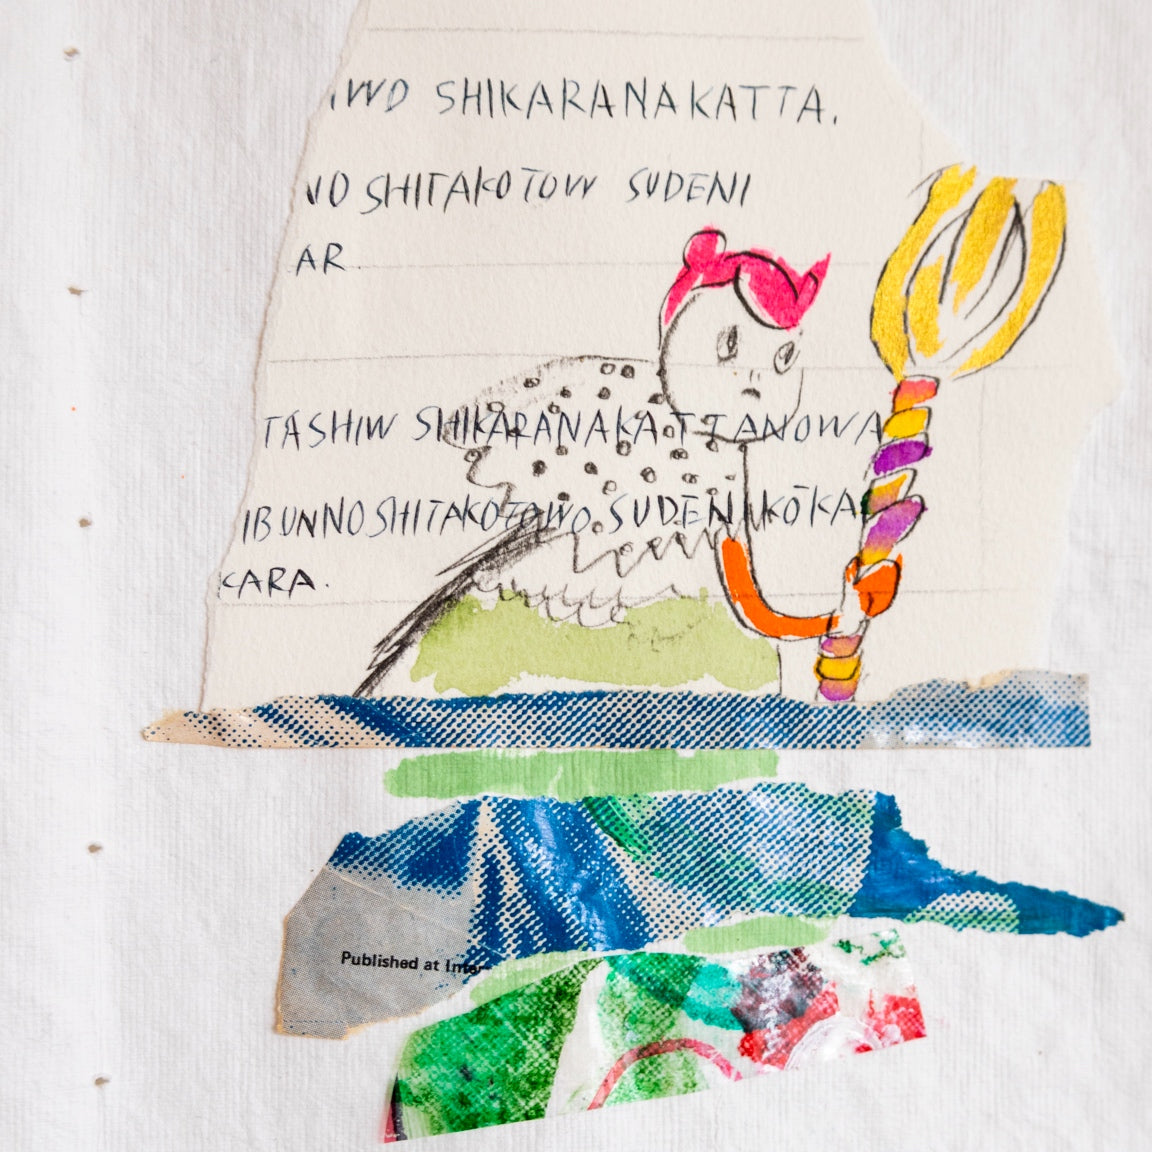 IWO SHIKARANAKATTA.
NO SHITAKOTOW SUDENI
AR
TASHIW SHIKARANAKATTANOWA
IBUNNOSHITAKOTOWO SUDENIKŌKA
KARA.
Published at Inter